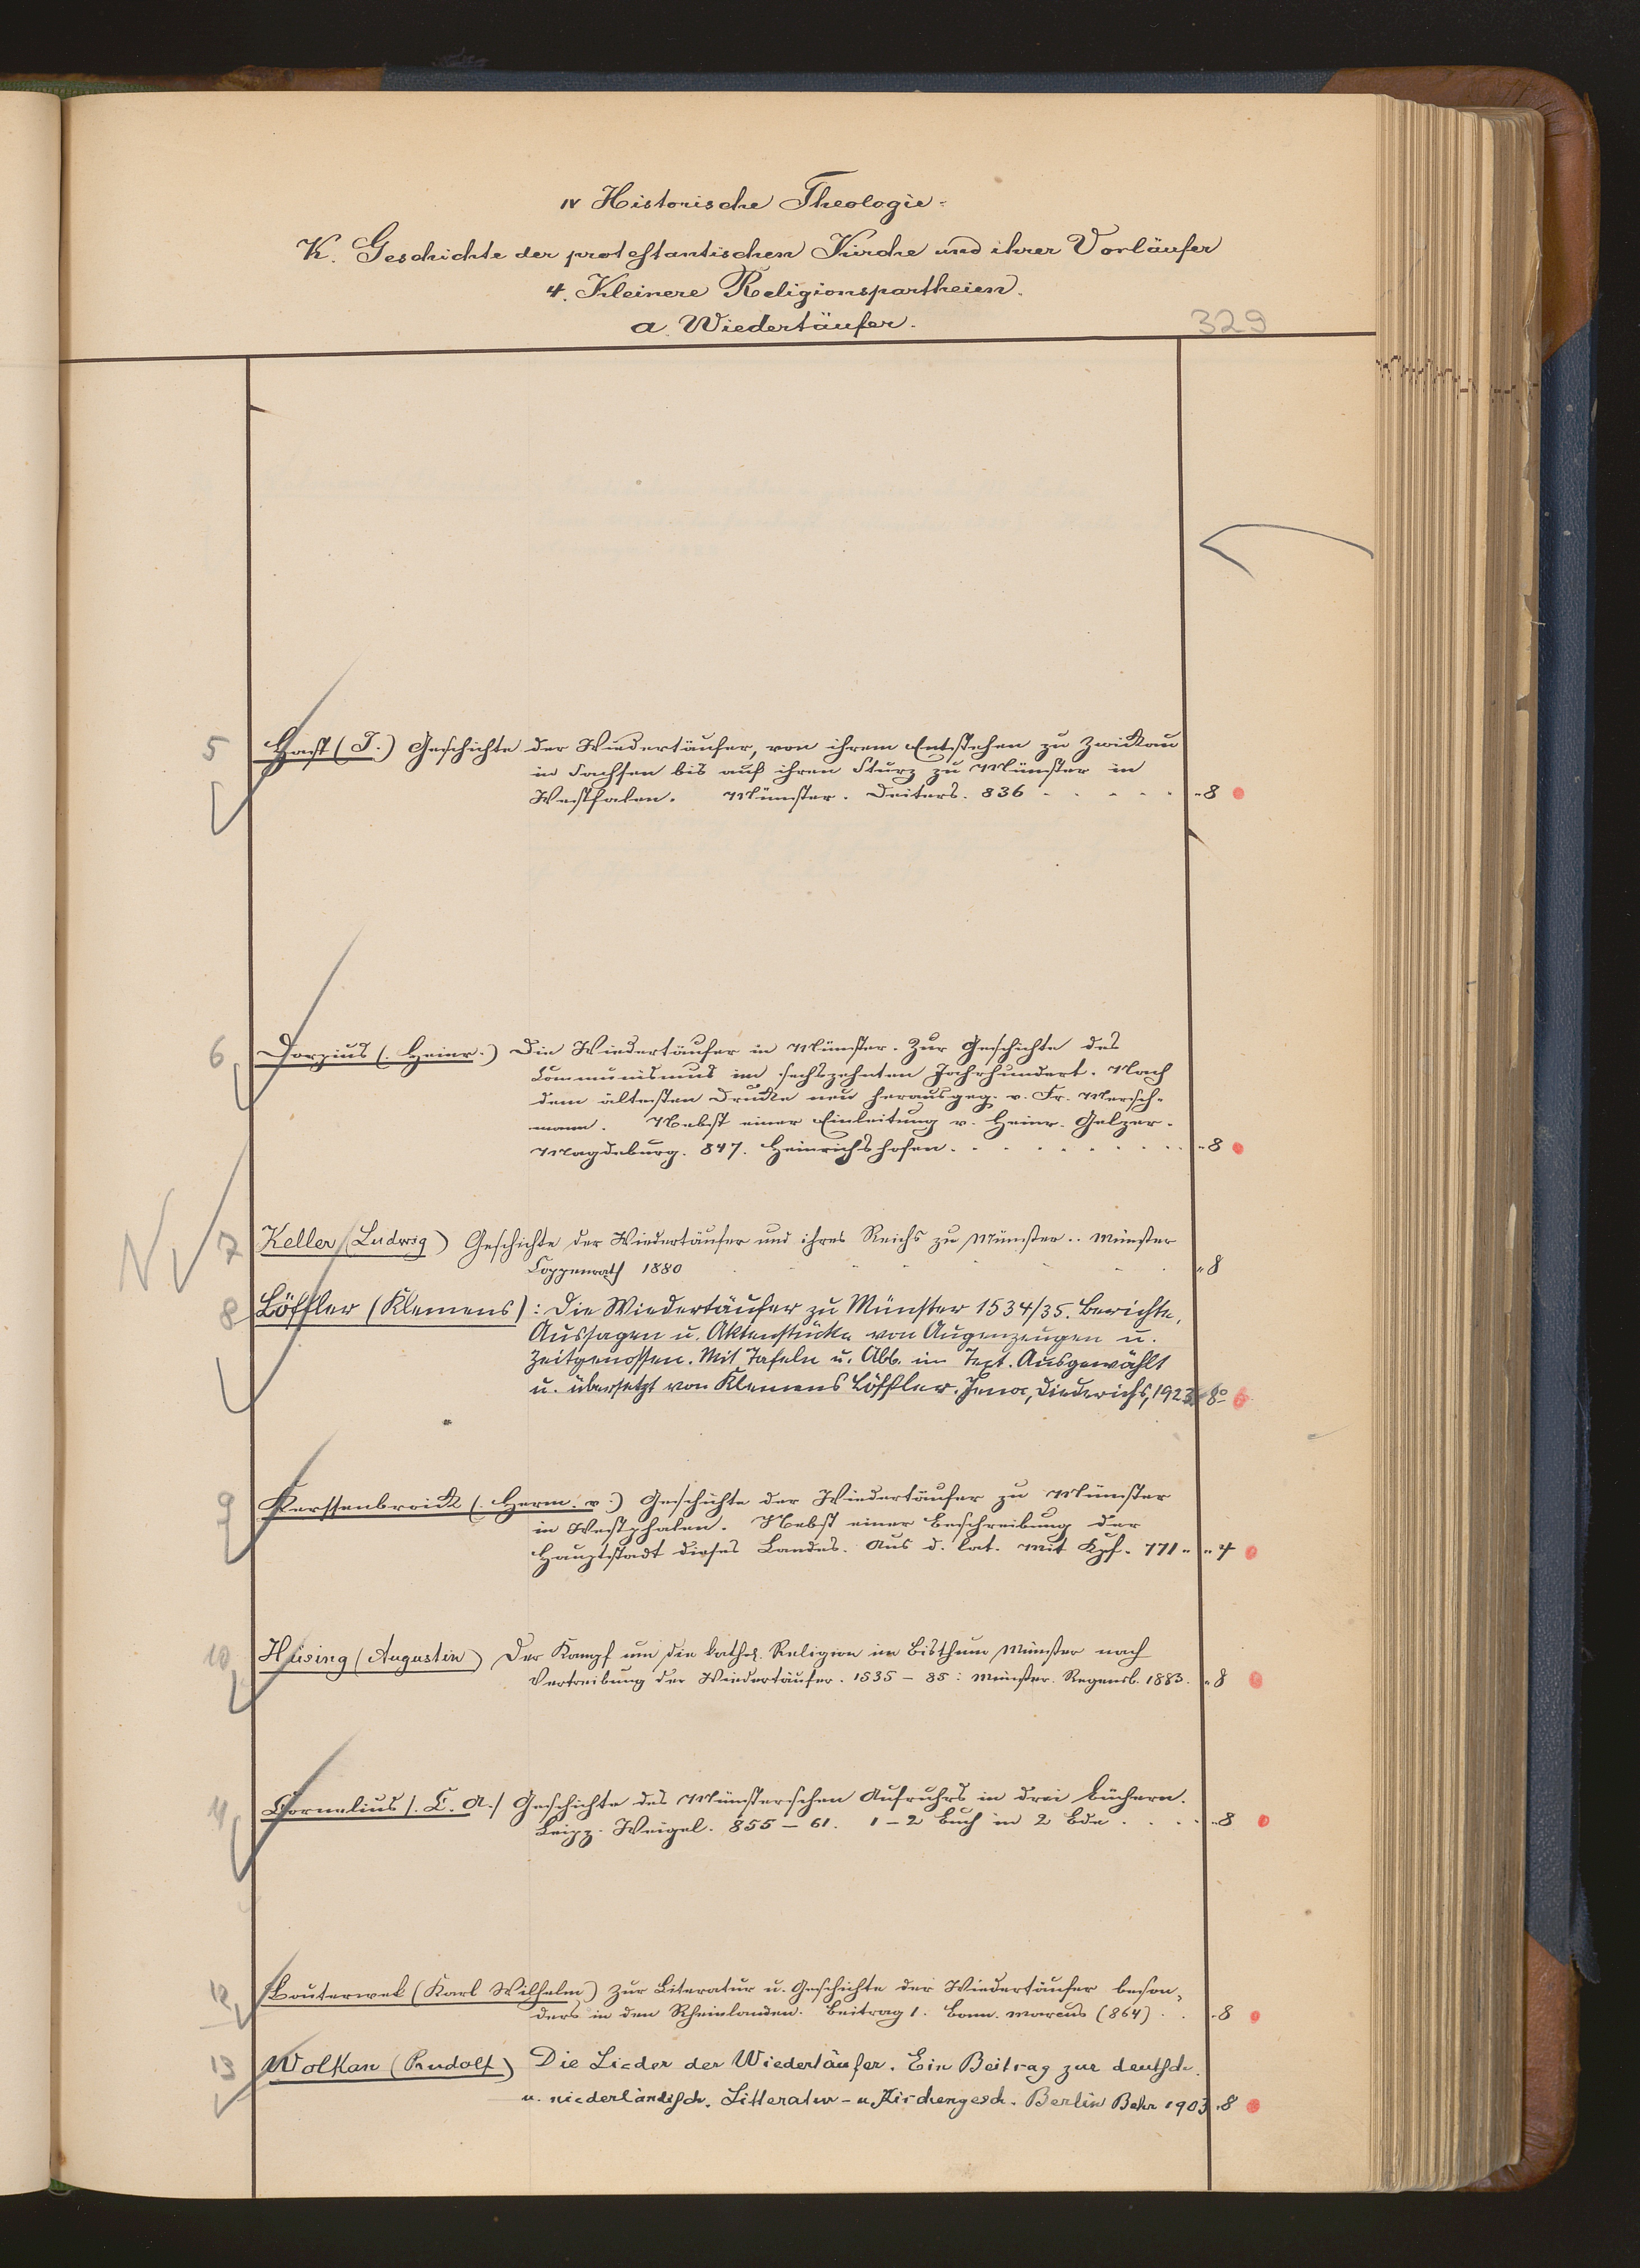 IV Historische Theologie.
K. Geschichte der protestantischen Kirche und ihrer Vorläufer
4. Kleinere Religionspartheien.
a. Wiedertäufer.
329
5 Hast (J.) Geschichte der Wiedertäufer, von ihrem Entstehen zu Zwickau
in Sachsen bis auf ihren Sturz zu Münster in
Westfalen. Münster. Deiters. 836 . . . . . „8
6 Dorpius (. Heinr.) Die Wiedertäufer in Münster. Zur Geschichte des
Communismus im sechszehnten Jahrhundert. Nach
dem ältesten Drucke neu herausgeg. v. Fr. Mersch-
mann. Nebst einer Einleitung v. Heinr. Gelzer.
Magdeburg. 847. Heinrichshofen. . . . . . . . . „8
N 7 Keller (Ludwig) Geschichte der Wiedertäufer und ihres Reichs zu Münster .. Münster
Coppenrath 1880 „8
8 Löffler (Klemens): Die Wiedertäufer zu Münster 1534/35. Berichte,
Aussagen u. Aktenstücke von Augenzeugen u.
Zeitgenossen. Mit Tafeln u. Abb. im Text. Ausgewählt
u. übersetzt von Klemens Löffler. Jena, Diederichs, 1923. 8°
9 Kerssenbroick (. Herm. v.) Geschichte der Wiedertäufer zu Münster
in Westphalen. Nebst einer Beschreibung der
Hauptstadt dieses Landes. Aus d. Lat. Mit Kpf. 771 „ „4
10 Hüsing (Augustin) Der Kampf um die kathol. Religion im Bisthum Münster nach
Vertreibung der Wiedertäufer. 1535 – 85: Münster. Regensb. 1883. „8
11 Cornelius (. C. A.) Geschichte des Münsterschen Aufruhrs in drei Büchern.
Leipz. Weigel. 855 – 61. 1 – 2 Buch in 2 Bde . . . . „8
12 Bouterwek (Karl Wilhelm) Zur Literatur u. Geschichte der Wiedertäufer beson-
ders in den Rheinlanden. Beitrag 1. Bonn. Marcus (864) . . „8
13 Wolkan (Rudolf) Die Lieder der Wiedertäufer. Ein Beitrag zur deutsch.
u. niederländisch. Litteratur- u. Kirchengesch. Berlin Behr 1903 „8